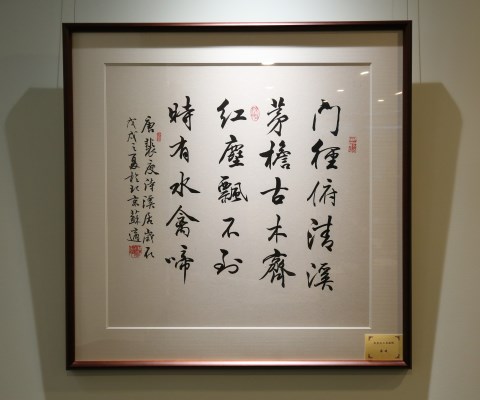 门徑俯清溪
茅檐古木齊
红塵飄不到
時有水禽啼
唐裴度诗溪居歲在
戊戌之夏於北京蘇適